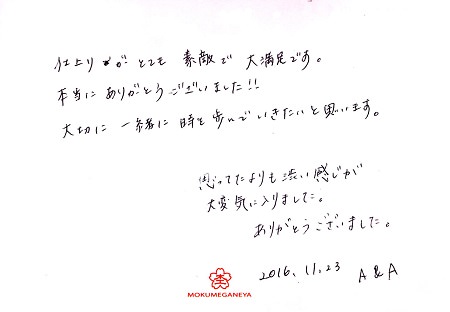 仕上りがとても素敵で大満足です。
本当にありがとうございました!!
大切に一緒に時を歩んでいきたいと思います。
思ってたよりも渋い感じが
大変気に入りました。
ありがとうございました。
2016.11.23 A & A
MOKUMEGANEYA